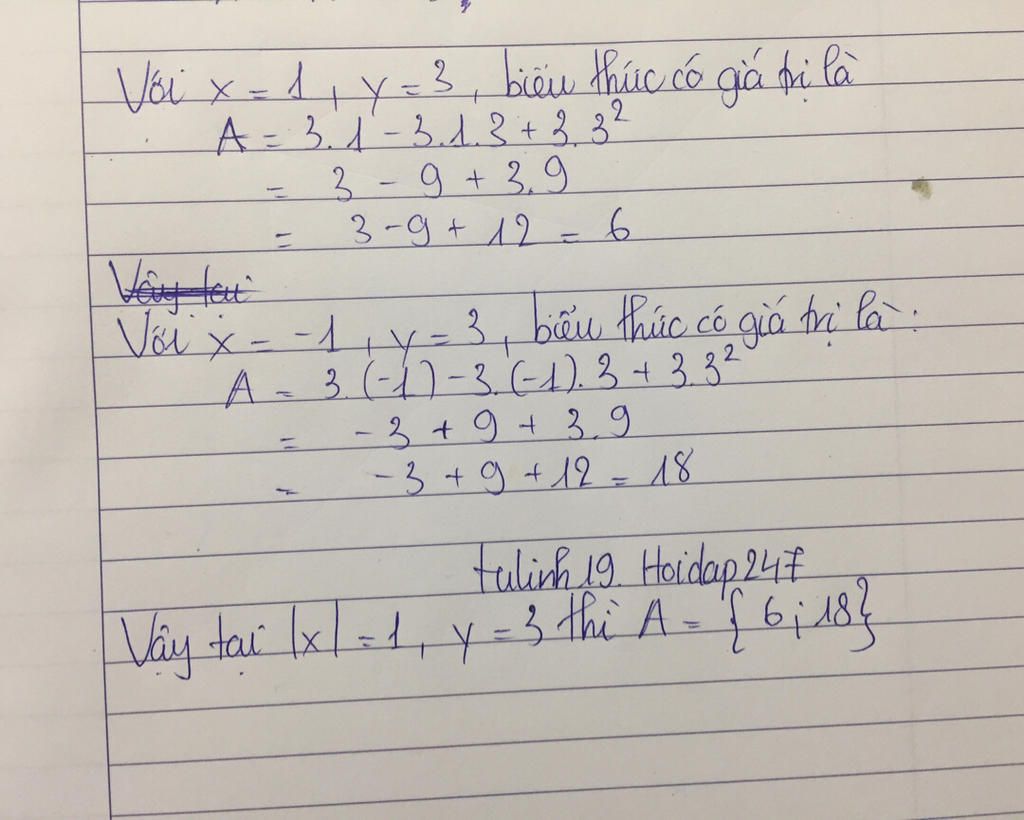 Với x = 1, y = 3, biểu thức có giá trị là
A = 3.1 - 3.1.3 + 3.3²
= 3 - 9 + 3.9
= 3 - 9 + 12 = 6
Vậy tại
Với x = -1, y = 3, biểu thức có giá trị là:
A = 3.(-1) - 3.(-1).3 + 3.3²
= -3 + 9 + 3.9
= -3 + 9 + 12 = 18
tulinh19. Hoidap247
Vậy tại |x| = 1, y = 3 thì A = {6; 18}